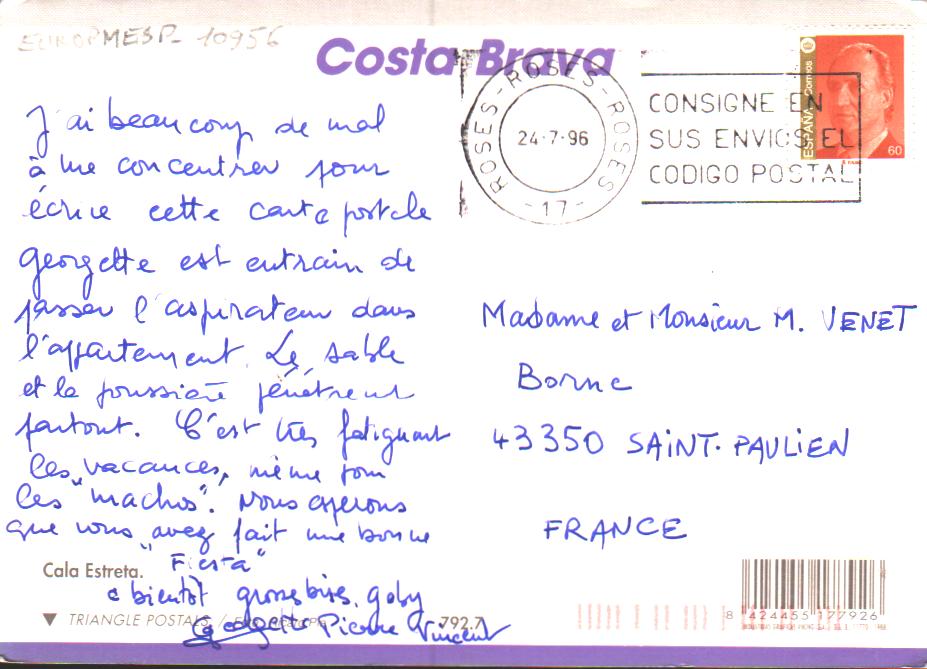 EUROPMESP_10956
Costa Brava
ROSES-ROSES-ROSES
24-7-96
-17-
CONSIGNE EN
SUS ENVIOS EL
CODIGO POSTAL
ESPAÑA Correos
60
J'ai beaucoup de mal
à me concentrer pour
écrire cette carte postale
Georgette est entrain de
passer l'aspirateur dans
l'appartement. Le sable
et la poussière pénètrent
partout. C'est très fatiguant
les vacances, même pour
les "machos". Nous espérons
que vous avez fait une bonne
"Fiesta"
a bientôt grosses bises. gaby
Georgette Pierre Vincent
Madame et Monsieur M. VENET
Borne
43350 SAINT-PAULIEN
FRANCE
Cala Estreta.
▼ TRIANGLE POSTALS /
792.7
8 424455 177926